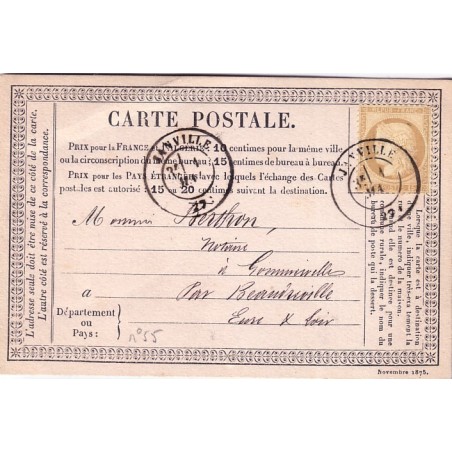 CARTE POSTALE.
REPUB. FRANC.
PRIX pour la FRANCE et 10 centimes pour la même ville
ou la circonscription du même bureau; 15 centimes de bureau à bureau.
PRIX pour les PAYS ÉTRANGERS avec lesquels l'échange des Cartes
postales est autorisé: 15 ou 20 centimes suivant la destination.
JANVILLE
JANVILLE
Monsieur Berthon,
Notaire
à Gommerville
a Par Beaudreville
Département
ou
Pays:
Eure & Loir
n° 55
L'adresse seule doit être mise de ce côté de la carte.
L'autre côté est réservé à la correspondance.
Lorsque la carte est à destination
d'une ville, indiquer très-exactement la
rue et le numéro de la maison.
Quand elle est destinée pour une
commune rurale, indiquer le nom du
bureau de poste qui la dessert.
Novembre 1875.